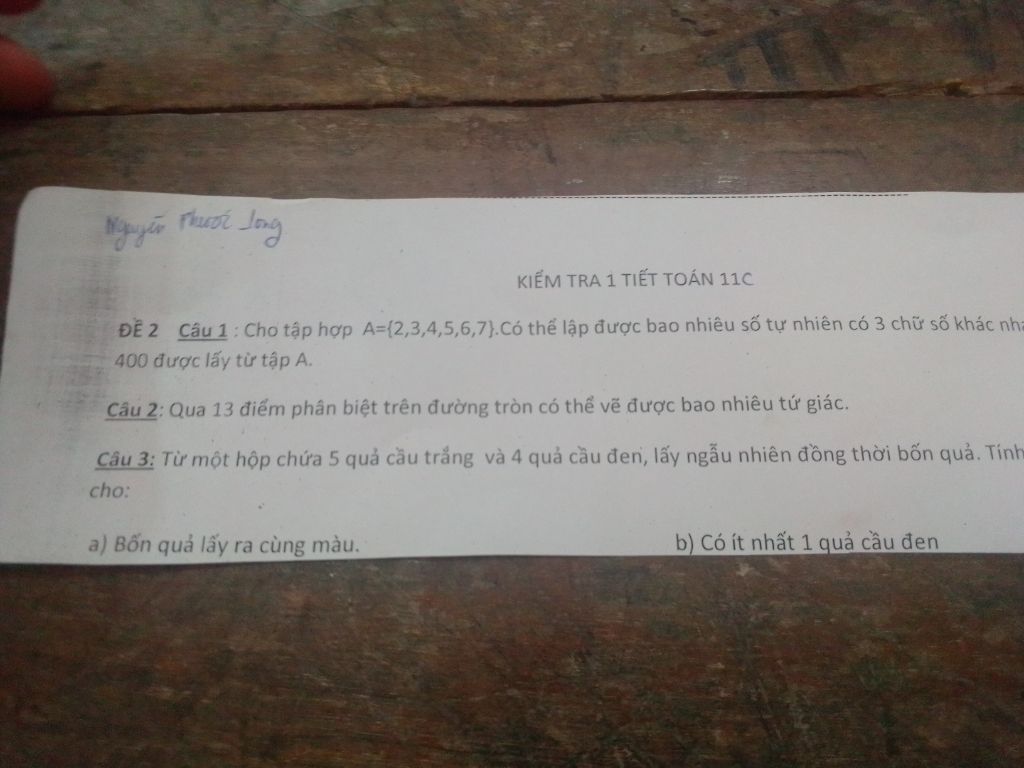 Nguyễn Phước Long
KIỂM TRA 1 TIẾT TOÁN 11C
ĐỀ 2 Câu 1 : Cho tập hợp A={2,3,4,5,6,7}.Có thể lập được bao nhiêu số tự nhiên có 3 chữ số khác
400 được lấy từ tập A.
Câu 2: Qua 13 điểm phân biệt trên đường tròn có thể vẽ được bao nhiêu tứ giác.
Câu 3: Từ một hộp chứa 5 quả cầu trắng và 4 quả cầu đen, lấy ngẫu nhiên đồng thời bốn quả. Tính
cho:
a) Bốn quả lấy ra cùng màu. b) Có ít nhất 1 quả cầu đen